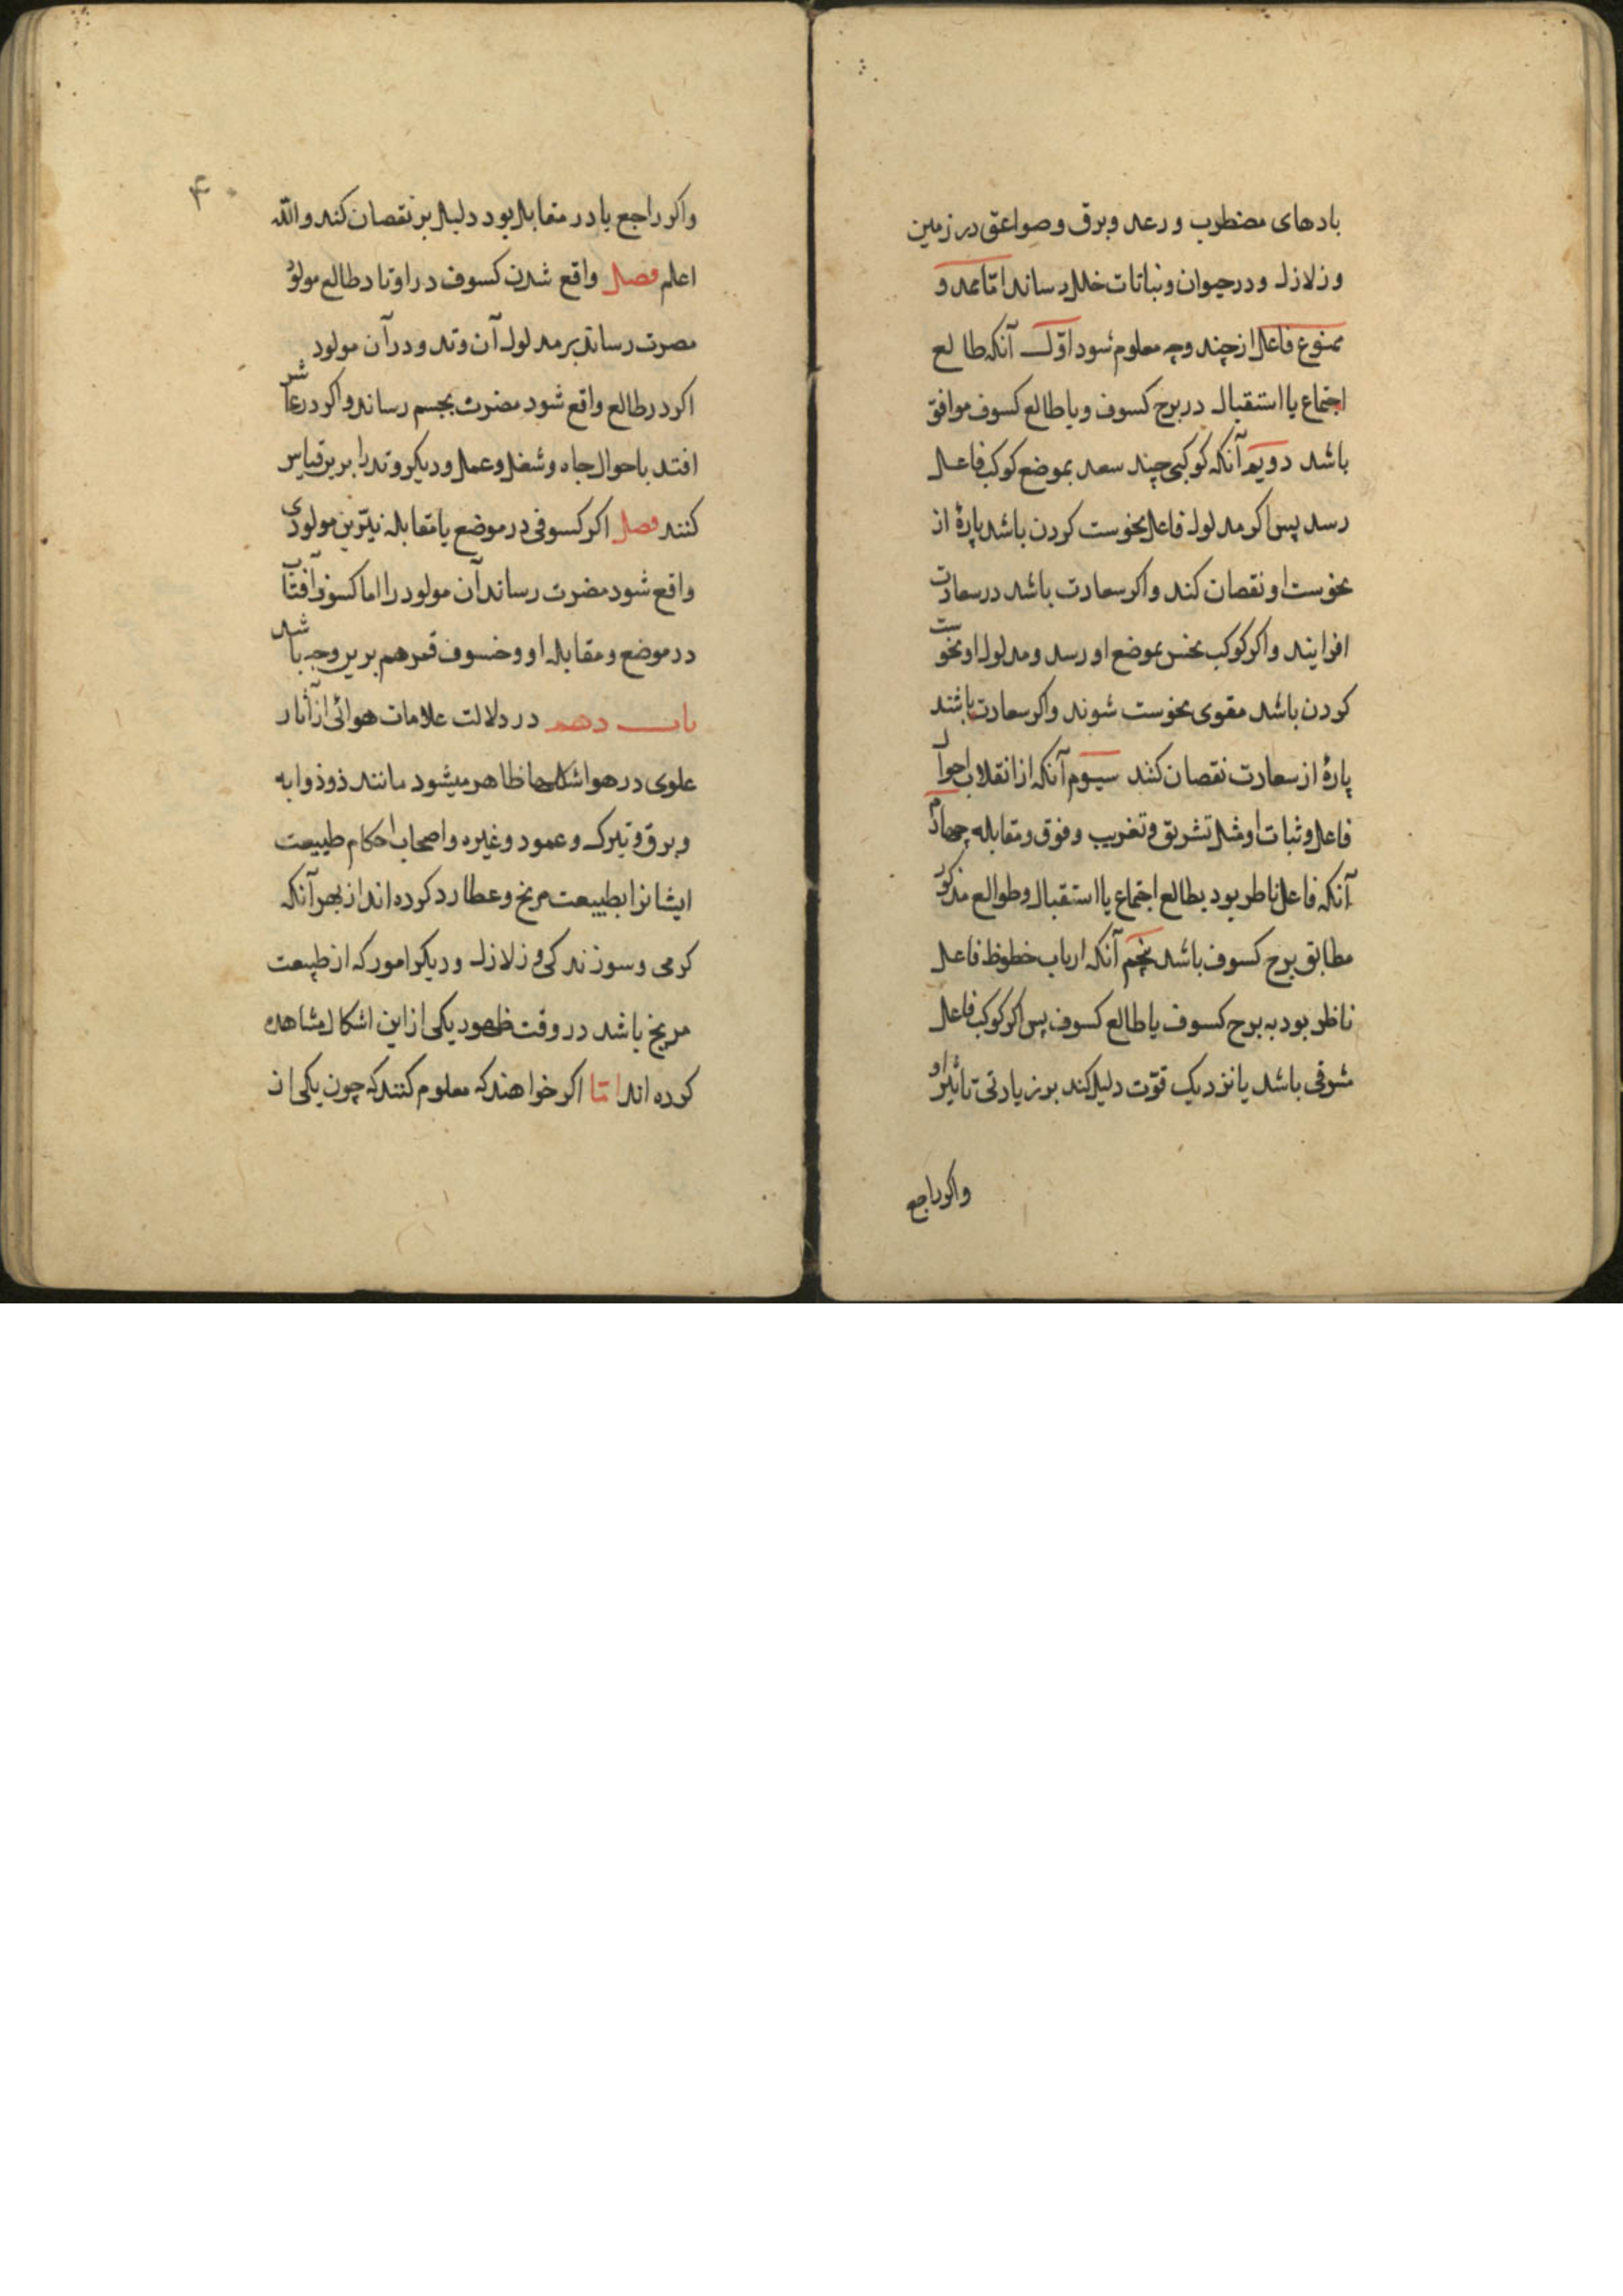 بادهای مضطرب و رعد و برق و صواعق در زمین
و زلازل و در حیوان و نباتات خلل رساند اما ممد و
ممنوع فاعل از چند وجه معلوم شود اوّل آنکه طالع
اجتماع یا استقبال در برج کسوف و یا طالع کسوف موافق
باشد دویم آنکه کوکبی چند سعد بموضع کوکب فاعل
رسد پس اکر مدلول فاعل نحوست کردن باشد پارهٔ از
نحوست او نقصان کند و اکر سعادت باشد در سعادت
افزایند و اکر کوکب نحس بموضع او رسد و مدلول او نحوست
کردن باشد مقوی نحوست شوند و اکر سعادت باشند
پارهٔ از سعادت نقصان کنند سیوم آنکه از انقلاب احوال
فاعل و ثبات او مثل تشریق و تغریب و فوق و مقابله چهارم
آنکه فاعل ناظر بود بطالع اجتماع یا استقبال و طوالع مذکور
مطابق برج کسوف باشد پنجم آنکه ارباب خطوظ فاعل
ناظر بود به برج کسوف یا طالع کسوف پس اکر کوکب فاعل
شرقی باشد یا نزدیک قوّت دلیل کند بر زیادتی تاثیر او
و اکر راجع
۴
و اکر راجع یا در مقابل بود دلیل بر نقصان کند و الله
اعلم فصل واقع شدن کسوف در اوتاد طالع مولود
مصرت رساند بر مدلول آن وتد و در آن مولود
اکر در طالع واقع شود مضرت بجسم رساند و اکر در عاشر
افتد باحوال جاه و شغل و عمل و دیکر وتد را برین قیاس
کنند فصل اکر کسوفی در موضع یا مقابله نیّرین مولودی
واقع شود مضرت رساند آن مولود را اما کسوف آفتاب
در موضع و مقابله او و خسوف قمر هم برین وجه باشد
باب دهم در دلالت علامات هوائی از آثار
علوی در هوا شکلها ظاهر میشود مانند ذوذوابه
و برق و تیرک و عمود و غیره و اصحاب احکام طبیعت
ایشانرا بطبیعت مریخ و عطارد کرده اند از بهر آنکه
کرمی و سوزندکی و زلازل و دیکر امور که از طبیعت
مریخ باشد در وقت ظهور یکی از این اشکال مشاهده
کرده اند امّا اکر خواهند که معلوم کنند که چون یکی از